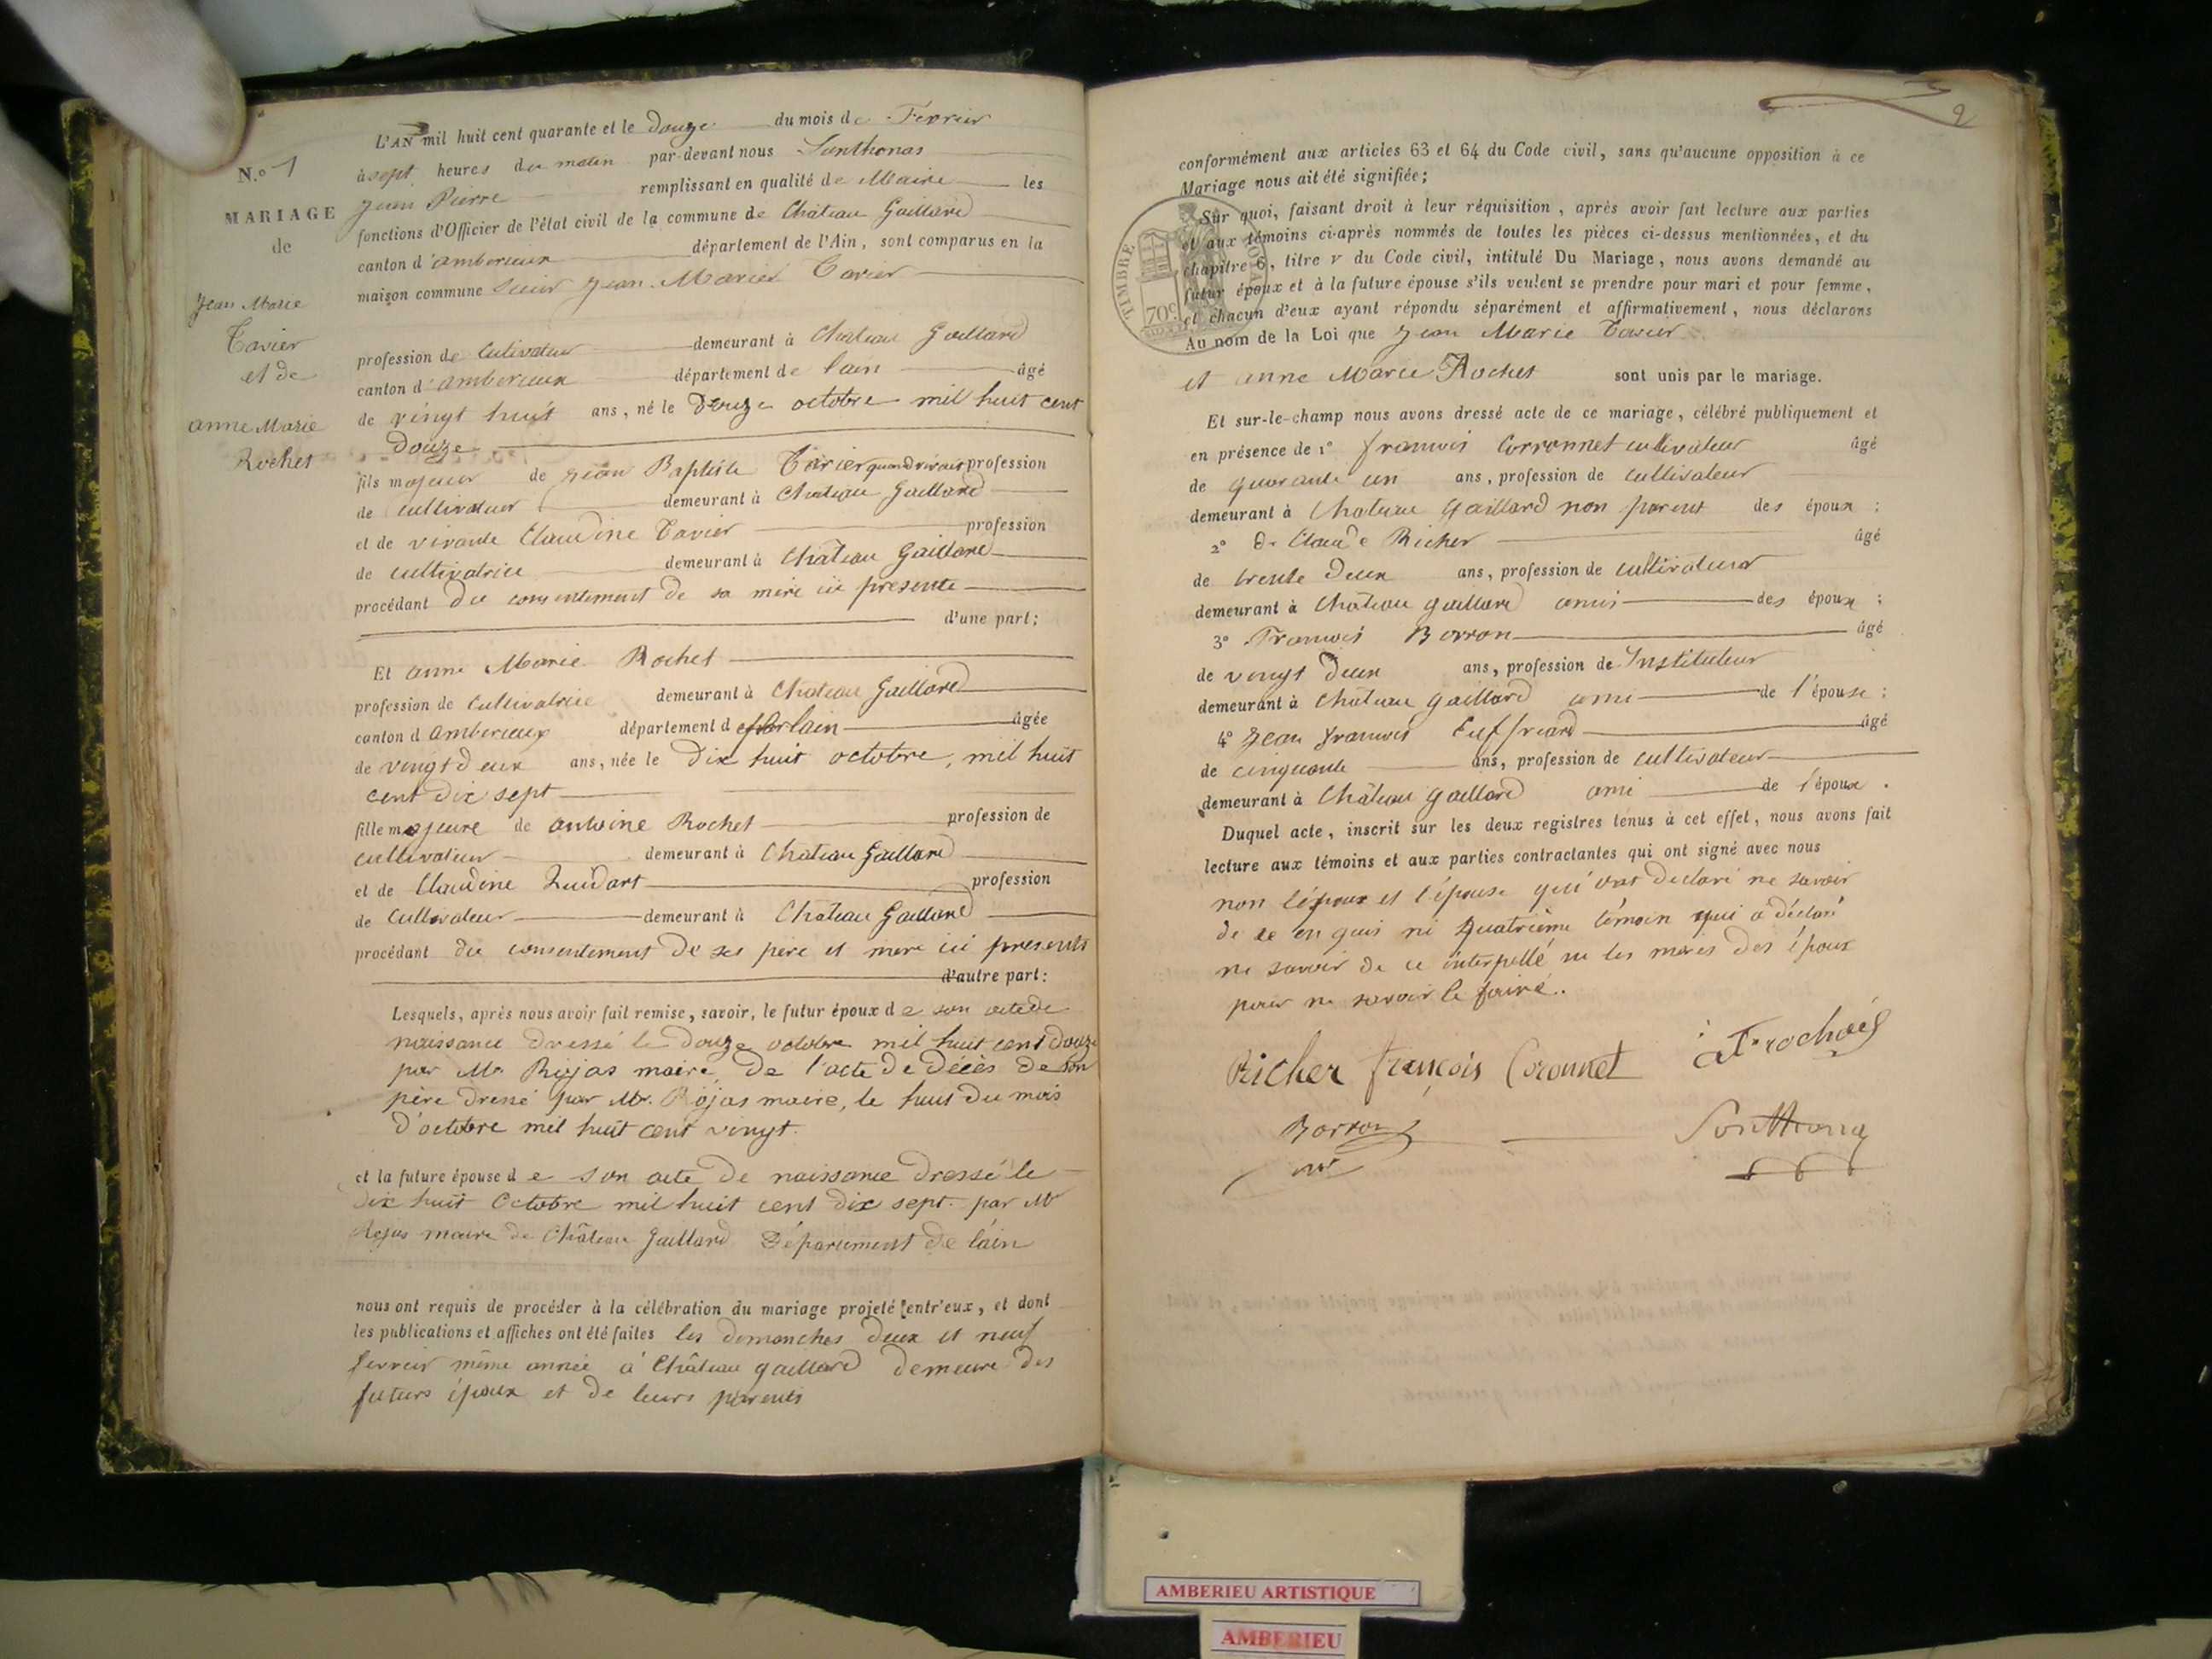 L'AN mil huit cent quarante et le douze du mois de Février
N.º 1
à sept heures du matin par-devant nous Sonthonas
Jean Pierre remplissant en qualité de Maire les
MARIAGE
fonctions d'Officier de l'état civil de la commune de Château Gaillard
de
canton d'amberieux département de l'Ain, sont comparus en la
maison commune Sieur Jean Marie Tavier
Jean Marie
Tavier
et de
anne Marie
Rochet
profession de Cultivateur demeurant à Château Gaillard
canton d'amberieux département de lain âgé
de vingt huit ans, né le Douze octobre mil huit cent
Douze
fils majeur de jean Baptiste Tavier quand vivait profession
de cultivateur demeurant à Château Gaillard
et de vivante Claudine Tavier profession
de cultivatrice demeurant à Château Gaillard
procédant du consentement de sa mère ici presente
d'une part;
Et anne Marie Rochet
profession de Cultivatrice demeurant à Château Gaillard
canton d amberieux département de lain âgée
de vingt deux ans, née le Dix huit octobre, mil huit
cent dix sept
fille majeure de antoine Rochet profession de
cultivateur demeurant à Château Gaillard
et de Claudine profession
de Cultivateur demeurant à Château Gaillard
procédant du consentement de ses père et mère ici presents
d'autre part:
Lesquels, après nous avoir fait remise, savoir, le futur époux de son acte de
naissance dressé le douze octobre mil huit cent douze
par Mr Rojas maire, de l'acte de décès de son
père dressé par Mr. Rojas maire, le huit du mois
d'octobre mil huit cent vingt.
et la future épouse de son acte de naissance dressé le
dix huit Octobre mil huit cent dix sept par Mr
Rojas maire de Château Gaillard Département de l'ain
nous ont requis de procéder à la célébration du mariage projeté entr'eux, et dont
les publications et affiches ont été faites les dimanches deux et neuf
fevreir même année à Château gaillard demeure des
futurs époux et de leurs parents
2
conformément aux articles 63 et 64 du Code civil, sans qu'aucune opposition à ce
Mariage nous ait été signifiée;
Sur quoi, faisant droit à leur réquisition, après avoir fait lecture aux parties
et aux témoins ci-après nommés de toutes les pièces ci-dessus mentionnées, et du
chapitre 6, titre v du Code civil, intitulé Du Mariage, nous avons demandé au
futur époux et à la future épouse s'ils veulent se prendre pour mari et pour femme,
et chacun d'eux ayant répondu séparément et affirmativement, nous déclarons
Au nom de la Loi que Jean Marie Tavier
TIMBRE ROYAL
70c
et anne Marie Rochet sont unis par le mariage.
Et sur-le-champ nous avons dressé acte de ce mariage, célébré publiquement et
en présence de 1º francois Corronnet cultivateur âgé
de quarante un ans, profession de cultivateur
demeurant à Château gaillard non parent des époux;
2º de Claude Richer âgé
de trente deux ans, profession de cultivateur
demeurant à Château gaillard amis des époux;
3º Francois Borron âgé
de vingt deux ans, profession de Instituteur
demeurant à Château gaillard ami de l'épouse;
4º Jean francois âgé
de cinquante ans, profession de cultivateur
demeurant à Château gaillard ami de l'épouse.
Duquel acte, inscrit sur les deux registres tenus à cet effet, nous avons fait
lecture aux témoins et aux parties contractantes qui ont signé avec nous
non l'époux et l'épouse qui ont declaré ne savoir
de ce en quis ni quatrième témoin qui a déclaré
ne savoir de ce interpellé ni les mères des époux
pour ne savoir le faire.
Richer françois Coronnet
Borron
Sonthonas
AMBERIEU ARTISTIQUE
AMBERIEU